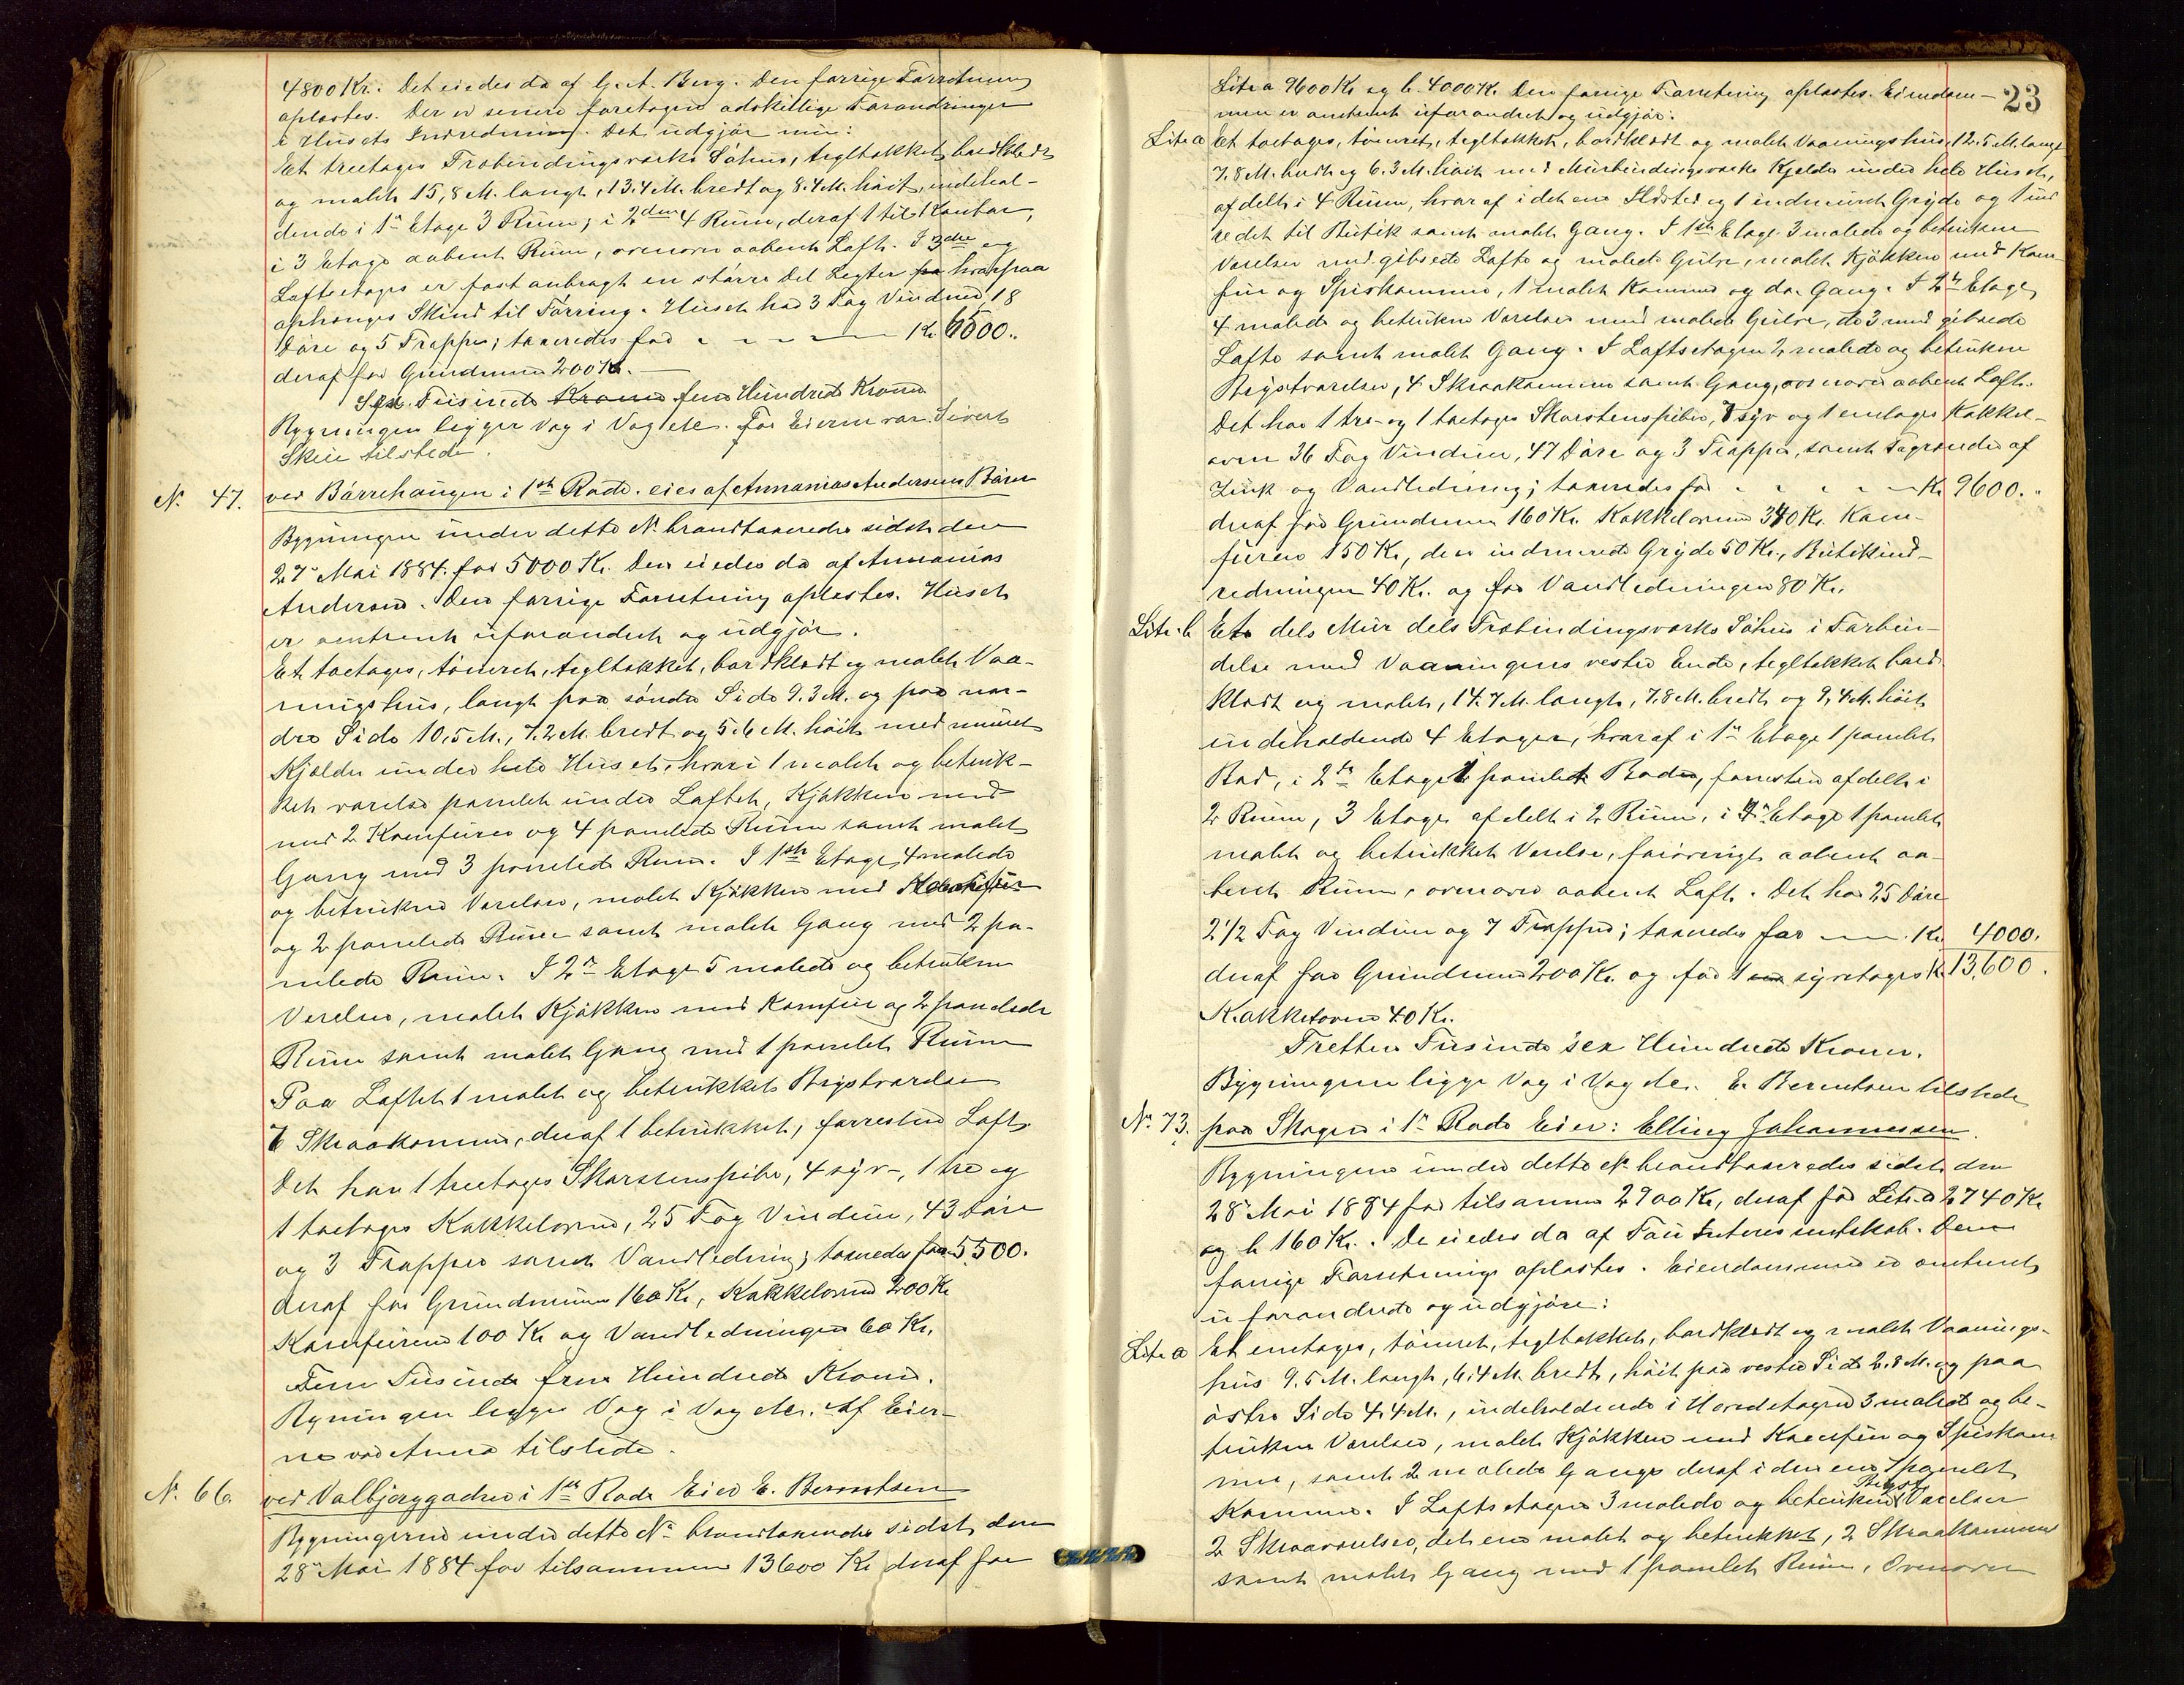 4800 Kr. Det eiedes da af G. A. Berg. Den forrige Forretning
oplæstes. Der er senere foretagen adskillige Forandringer
i Husets Indredning. Det udgjør nu:
Et treetages Træbindingsværks Søhus, tegltækket, bordklædt
og malet 15,8 M. langt, 13.4 M. bredt og 8.4 M. høit, indehol-
dende i 1ste Etage 3 Rum; i 2den 4 Rum, deraf 1 til Kontor,
i 3 Etage aabent Rum, ovenover aabent Loft. I 3die og
Loftsetages er fast anbragt en større Del Legter paa hvorpaa
ophænges Skind til Tørring. Huset har 3 Fag Vinduer, 18
Døre og 5 Trapper; taxeredes for - - - - Kr. 6500.
deraf for Grundmuren 200 Kr.
Sex Tusinde Kroner fem Hundrede Kroner
Bygningen ligger Væg i Væg etc. For Eieren var Sivert
Skeie tilstede.
No. 47. ved Børrehaugen i 1ste Rode. eies af Annanias Andersens Børn
Bygningen under dette No brandtaxeredes sidst den
27de Mai 1884 for 5000 Kr. Den eiedes da af Annanias
Andersen. Den forrige Forretning oplæstes. Huset
er omtrent uforandret og udgjør.
Et toetages, tømret, tegltækket, bordklædt og malet Vaa-
ningshus, langt paa søndre Side 9.3 M. og paa nor-
dre Side 10,5 M., 7.2 M. bredt og 5.6 M. høit med muret
Kjælder under hele Huset, hvori 1 malet og betræk-
ket værelse panelet under Loftet, Kjøkken med
med 2 Komfurer og 4 panelede Rum samt malet
Gang med 3 panelede Rum. I 1ste Etage 4 malede
og betrukne Værelser, malet Kjøkken med Komfur
og 2 panelede Rum samt malet Gang med 2 pa-
nelede Rum. I 2den Etage 5 malede og betrukne
Værelser, malet Kjøkken med Komfur og 2 panelede
Rum samt malet Gang med 1 panelet Rum
Paa Loftet 1 malet og betrukket Bigstværelse
6 Skraakammer, deraf 1 betrukket, forresten Loft
Det har 1 treetages Skorstenspibe, 4 syv-, 1 tre og
1 toetages Kakkelovne, 25 Fag Vinduer, 43 Døre
og 3 Trapper samt Vandledning; taxeredes for 5,500.
deraf for Grundmuren 160 Kr., Kakkelovne 200 Kr
Komfurene 100 Kr og Vandledningen 60 Kr.
Fem Tusinde fem Hundrede Kroner.
Bygningen ligger Væg i Væg etc. Af Eier-
ne var Anna tilstede.
No. 66. ved Valbjerggaden i 1ste Rode Eier E. Berentsen
Bygningerne under dette No brandtaxeredes sidst den
28de Mai 1884 for tilsammen 13600 Kr deraf for
23
Litr a 9600 Kr og b. 4000 Kr. Den forrige Forretning oplæstes. Eiendom-
men er omtrent uforandret og udgjør:
Litr a Et toetages, tømret, tegltækket, bordklædt og malet Vaaningshus, 12.5 M. langt
7.8 M. bredt og 6.3 M. høit med Murbindingsværks Kjelder under hele Huset,
afdelt i 4 Rum, hvoraf i det ene Ildsted og 1 indmuret Gryde og 1 ind
redet til Butik samt malet Gang. I 1ste Etage 3 malede og betrukne
Værelser med gibsede Lofte og malede Gulve, malet Kjøkken med Kom-
fur og Spiskammer, 1 malet Kammer og do. Gang. I 2den Etage
4 malede og betrukne Værelser med malede Gulve, de 3 med gibsede
Lofte samt malet Gang. I Loftsetagen 2 malede og betrukne
Bigstværelser, 4 Skraakammer samt Gang, ovenover aabent Loft.
Det har 1 tre- og 1 toetages Skorstenspiber, 7 syv og 1 enetages Kakkel-
ovne 36 Fag Vinduer, 47 Døre og 3 Trapper, samt Tagrender af
Zink og Vandledning; taxeredes for - - - - Kr. 9600.
deraf for Grundmuren 160 Kr. Kakkelovnene 340 Kr. Kom-
furene 150 Kr., den indmurede Gryde 50 Kr., Butikind-
redningen 40 Kr. og for Vandledningen 80 Kr.
Litr. b Et dels Mur dels Træbindingsværks Søhus i Forbin-
delse med Vaaningens vestre Ende, tegltækket bord
klædt og malet, 14.7 M. langt, 7.8 M. bredt og 9,4 M. høit
indeholdende 4 Etager, hvoraf i 1ste Etage 1 panelet
Bod, i 2den Etage 1 panelet Bod, forresten afdelt i
2 Rum, 3 Etage afdelt i 2 Rum, i 4de Etage 1 panelet
malet og betrukket Værelse, forøvrigt aabent aa-
bent Rum, ovenover aabent Loft. Det har 25 Døre
21/2 Fag Vinduer og 7 Trapper; taxeredes for - - Kr. 4000.
deraf for Grundmuren 200 Kr. og for 1 syvetages Kr. 13,600.
Kakkelovn 40 Kr.
Tretten Tusinde sex Hundrede Kroner.
Bygningerne ligger Væg i Væg etc. E. Berentsen tilstede
No. 73. paa Skagen i 1ste Rode Eier: Elling Johannessen.
Bygningerne under dette No brandtaxeredes sidst den
28de Mai 1884 for tilsammen 2900 Kr, deraf for Litr. a 2740 Kr
og b 160 Kr. De eiedes da af Tau Interessentskab. Den
forrige Forretning oplæstes. Eiendommen er omtrent
uforandret og udgjør:
Litr a Et enetages, tømret, tegltækket, bordklædt og malet Vaanings-
hus 9.5 M. langt, 6.4 M. bredt, høit paa vestre Side 2.8 M. og paa
østre Side 4.4 M., indeholdende i Hovedetagen 3 malede og be-
trukne Værelser, malet Kjøkken med Komfur og Spiskam
mer, samt 2 malede Gange deraf i den ene 1 panelet
Kammer. I Loftsetagen 3 malede og betrukne Bigst Værelser
2 Skraaværelser, det ene malet og betrukket, 2 Skraakammer
samt malet Gang med 1 panelet Rum. Ovenover